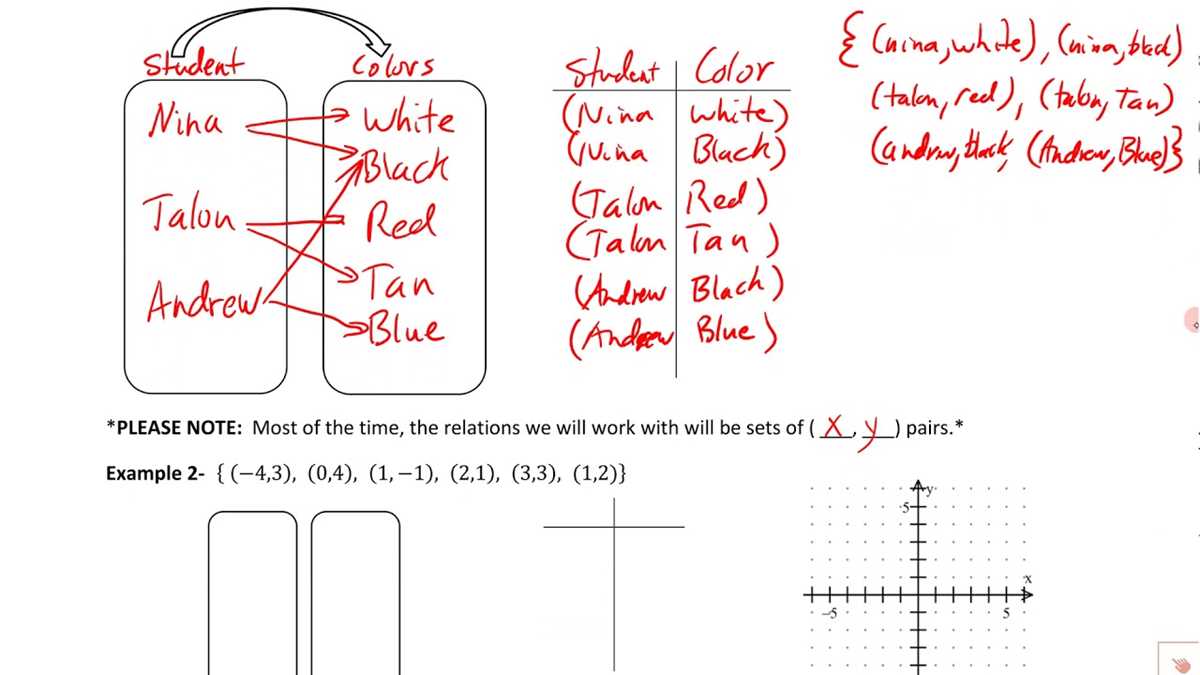 Student Colors
Nina White
Black
Talon Red
Tan
Andrew Blue
Student Color
(Nina White)
(Nina Black)
(Talon Red)
(Talon Tan)
(Andrew Black)
(Andrew Blue)
{ (nina, white), (nina, black)
(talon, red), (talon, Tan)
(andrew, black, (Andrew, Blue)}
*PLEASE NOTE: Most of the time, the relations we will work with will be sets of ( X , y ) pairs.*
Example 2- { (−4,3), (0,4), (1,−1), (2,1), (3,3), (1,2)}
y
5
x
-5 5